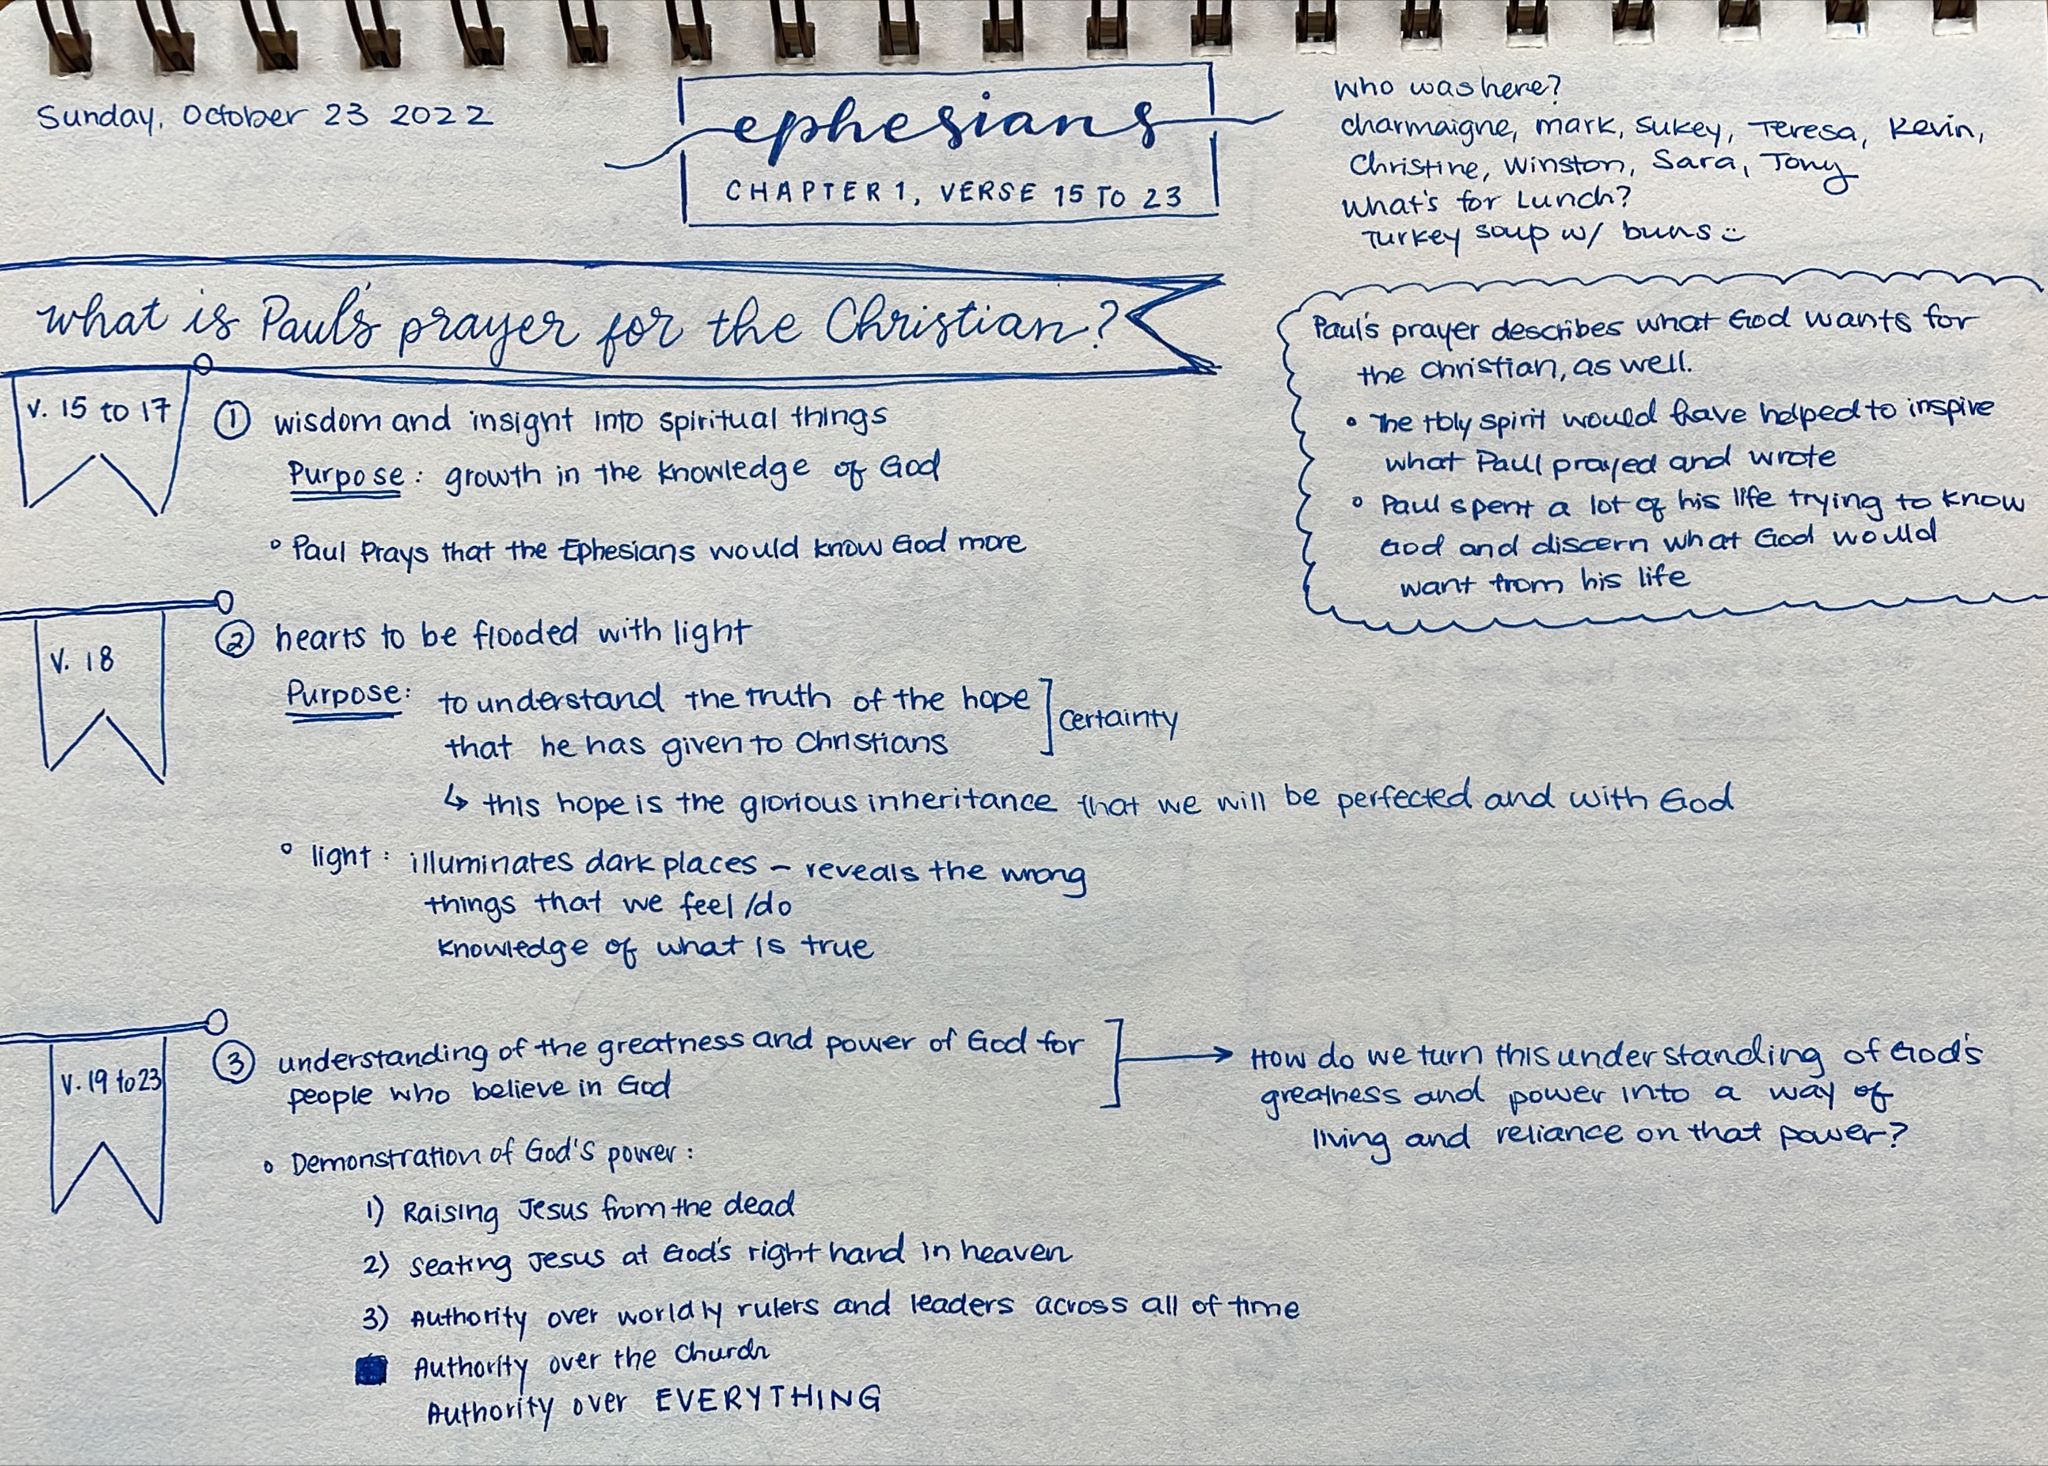 Sunday, October 23 2022
ephesians
CHAPTER 1, VERSE 15 TO 23
who was here?
charmaigne, mark, sukey, Teresa, Kevin,
Christine, Winston, Sara, Tony
what's for Lunch?
Turkey soup w/ buns :)
what is Paul's prayer for the Christian?
Paul's prayer describes what God wants for
the christian, as well.
• The Holy Spirit would have helped to inspire
what Paul prayed and wrote
• Paul spent a lot of his life trying to know
God and discern what God would
want from his life
v. 15 to 17
① wisdom and insight into spiritual things
Purpose: growth in the knowledge of God
• Paul Prays that the Ephesians would know God more
v. 18
② hearts to be flooded with light
Purpose: to understand the truth of the hope
that he has given to Christians
certainty
↳ this hope is the glorious inheritance that we will be perfected and with God
• light: illuminates dark places – reveals the wrong
things that we feel/do
knowledge of what is true
v. 19 to 23
③ understanding of the greatness and power of God for
people who believe in God
→ How do we turn this understanding of God's
greatness and power into a way of
living and reliance on that power?
• Demonstration of God's power:
1) Raising Jesus from the dead
2) Seating Jesus at God's right hand in heaven
3) Authority over worldly rulers and leaders across all of time
Authority over the Church
Authority over EVERYTHING